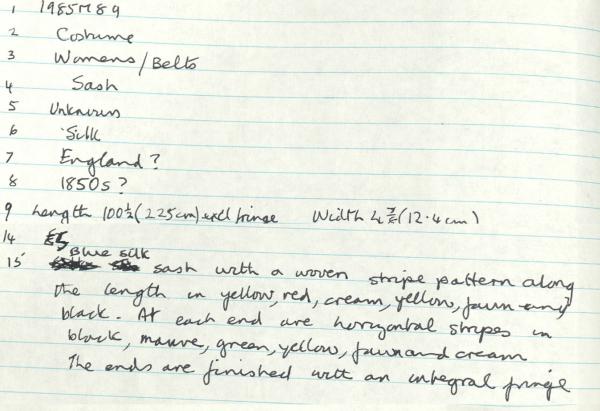 1 1985M89
2 Costume
3 Womens/Belts
4 Sash
5 Unknown
6 Silk
7 England?
8 1850s?
9 Length 100½(225cm) excl fringe Width 4⅞(12.4cm)
14 £5
Blue silk
15 sash with a woven stripe pattern along
the length in yellow, red, cream, yellow, fawn and
black. At each end are horizontal stripes in
black, mauve, green, yellow, fawn and cream
The ends are finished with an integral fringe